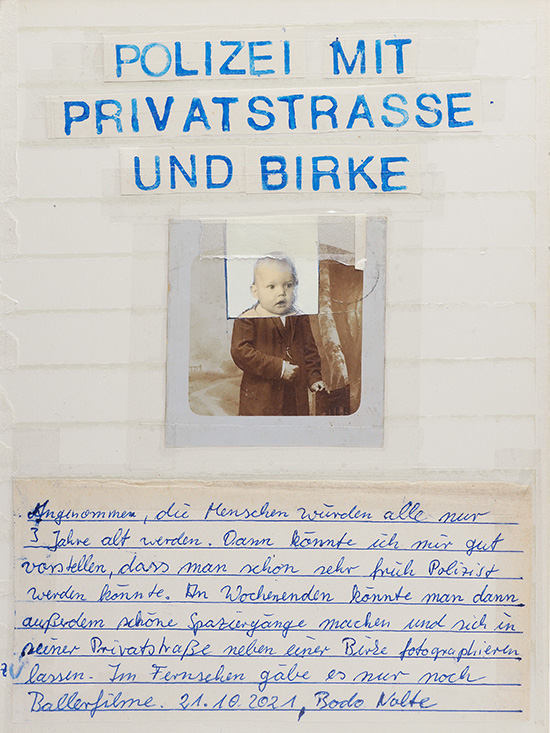 POLIZEI MIT
PRIVATSTRASSE
UND BIRKE
Angenommen, die Menschen würden alle nur
3 Jahre alt werden. Dann könnte ich mir gut
vorstellen, dass man schon sehr früh Polizist
werden könnte. An Wochenenden könnte man dann
außerdem schöne Spaziergänge machen und sich in
seiner Privatstraße neben einer Birke fotographieren
lassen. Im Fernsehen gäbe es nur noch
Ballerfilme. 21.10.2021, Bodo Nolte